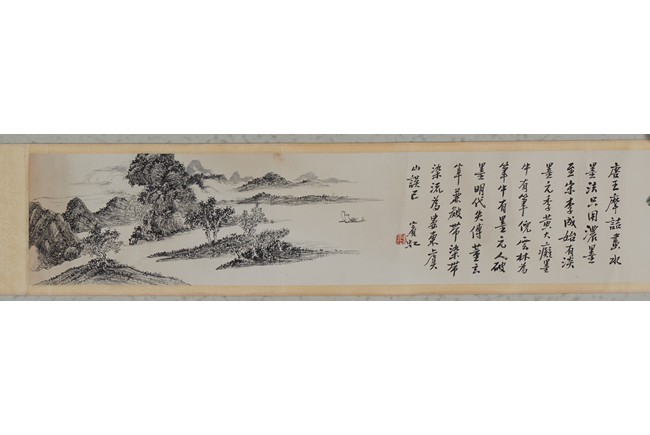 唐王摩詰畫水
墨法只用濃墨
至宋李成始有淡
墨元季黃大癡墨
中有筆倪雲林為
筆中有墨元人破
墨明代失傳董玄
宰兼皴帶染帶
染流為婁東虞
山誤已
賓虹